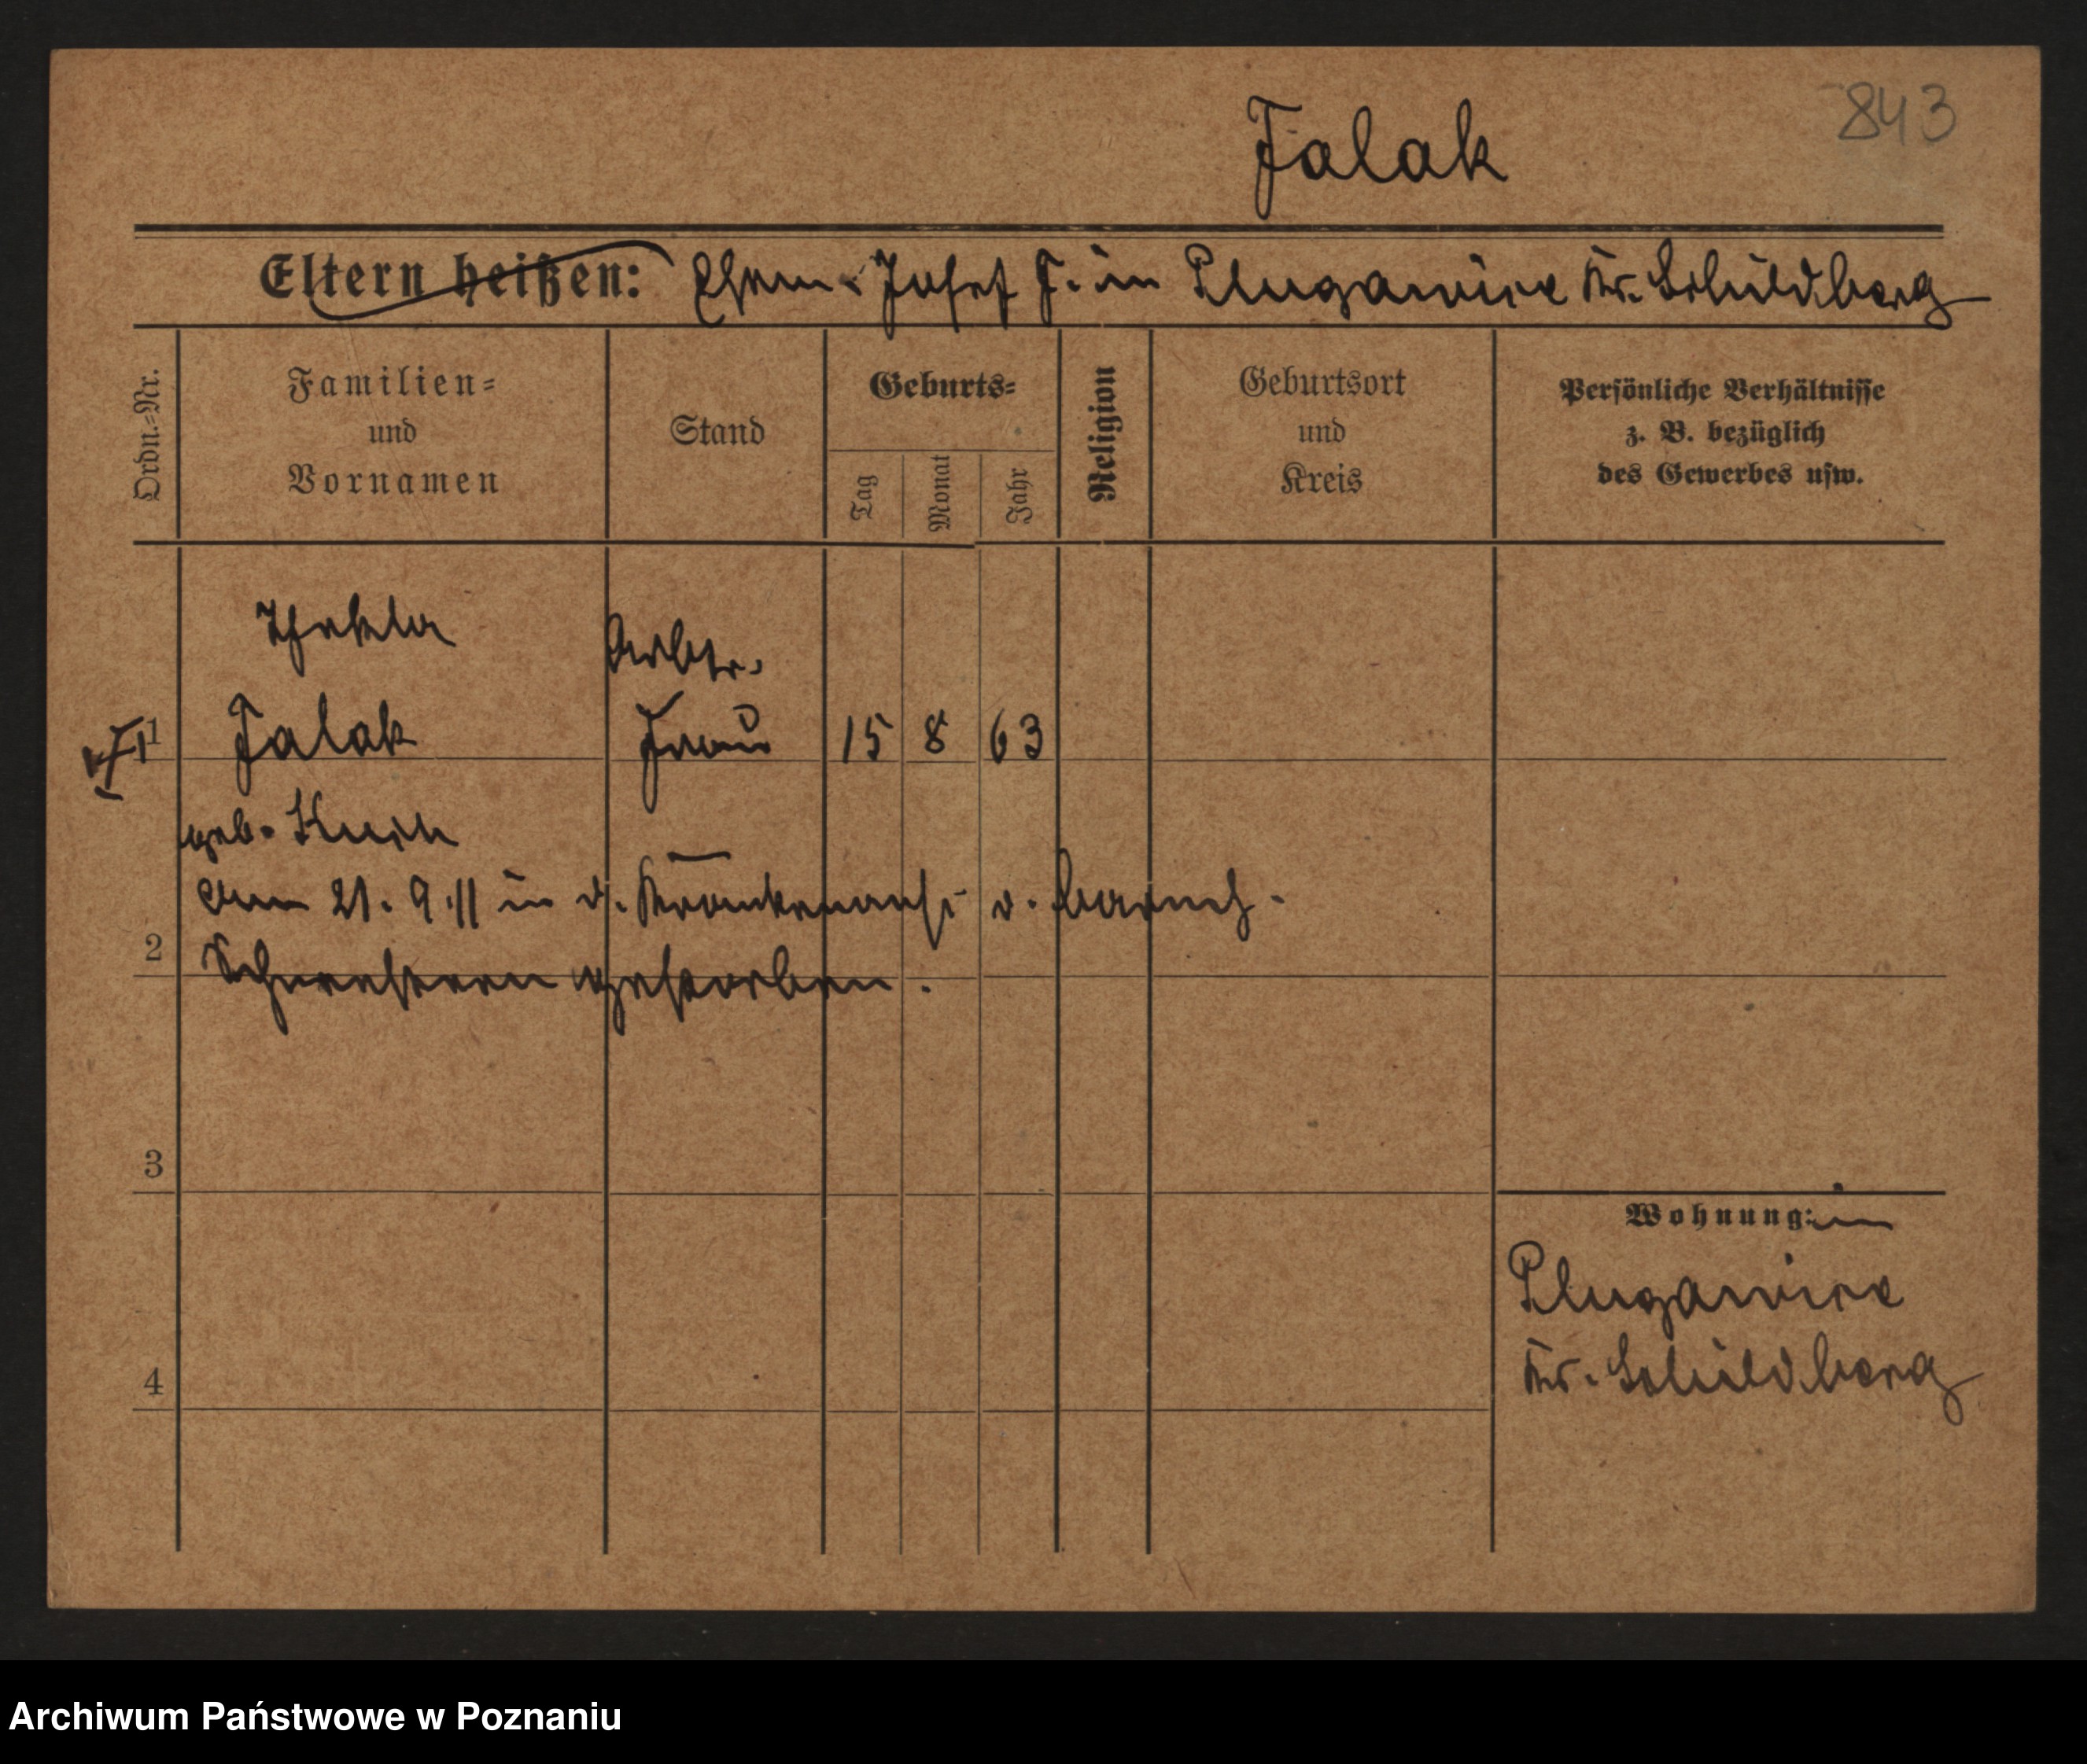 843
Falak
Eltern heißen: Ehem. Josef F. in Plugawice Kr. Schildberg
Ordn.=Nr.
Familien=
und
Vornamen
Stand
Geburts=
Tag
Monat
Jahr
Religion
Geburtsort
und
Kreis
Persönliche Verhältnisse
z. B. bezüglich
des Gewerbes usw.
Thekla Arbtr.
1 Falak Frau 15 8 63
geb.
am 21. 9. 11 in d. Krankenanst d. barmh.
2 Schwestern gestorben.
3
Wohnung: in
Plugawice
4 Kr. Schildberg
Archiwum Państwowe w Poznaniu